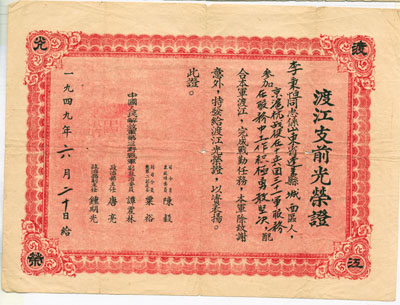 渡
江
光
榮
渡江支前光榮證
李東同志係山東省縣城南區人,
參加京滬杭戰役在兵團三十軍服務
在服務中工作積極勇敢堅決,配
合本軍渡江,完成戰勤任務,本軍除致謝
意外,特發給渡江光榮證,以資表揚。
此證。
中國人民解放軍第三野戰軍
司令員 陳毅
粟裕
譚震林
唐亮
鍾期光
一九四九年六月二十日給